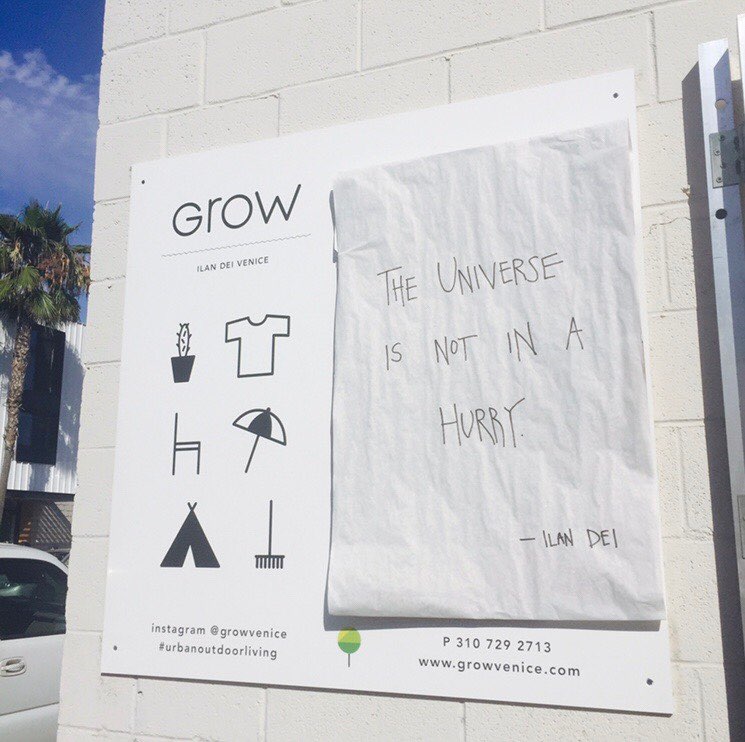 Grow
ILAN DEI VENICE
THE UNIVERSE
IS NOT IN A
HURRY.
— ILAN DEI
instagram @growvenice
#urbanoutdoorliving
P 310 729 2713
www.growvenice.com